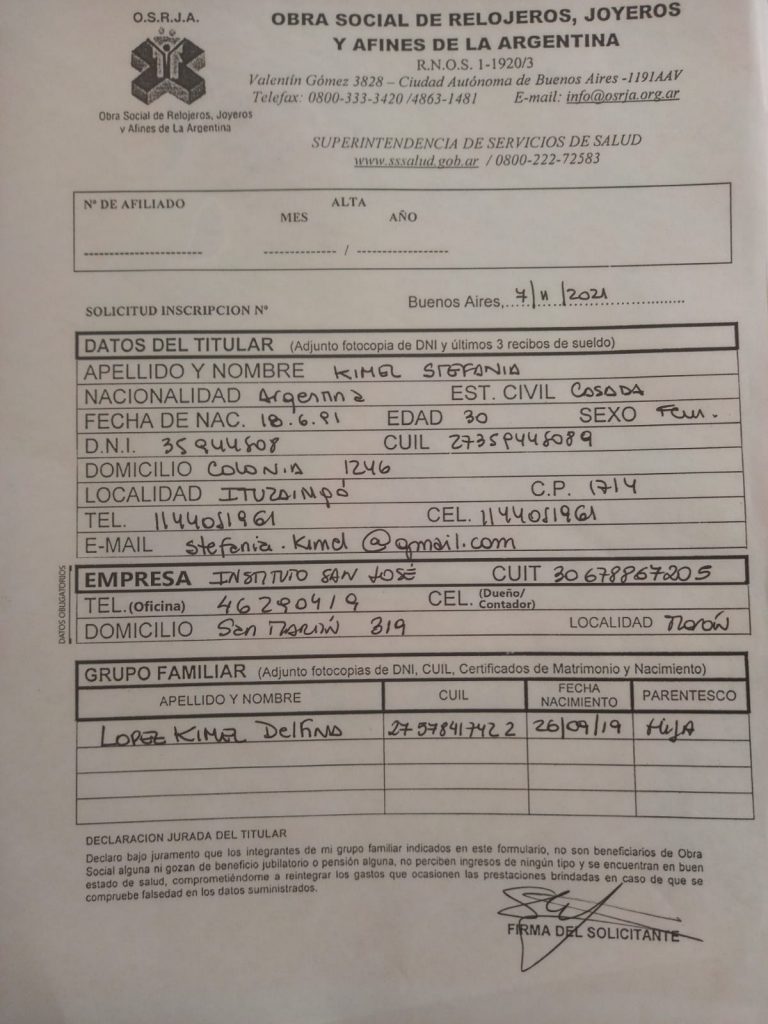 O.S.R.J.A.
Obra Social de Relojeros, Joyeros
y Afines de La Argentina
OBRA SOCIAL DE RELOJEROS, JOYEROS
Y AFINES DE LA ARGENTINA
R.N.O.S. 1-1920/3
Valentín Gómez 3828 – Ciudad Autónoma de Buenos Aires -1191AAV
Telefax: 0800-333-3420 /4863-1481 E-mail: info@osrja.org.ar
SUPERINTENDENCIA DE SERVICIOS DE SALUD
www.sssalud.gob.ar / 0800-222-72583
Nº DE AFILIADO ALTA
MES AÑO
-------------------- ------------- / ----------------
SOLICITUD INSCRIPCION Nº Buenos Aires, 7/11/2021
DATOS DEL TITULAR (Adjunto fotocopia de DNI y últimos 3 recibos de sueldo)
APELLIDO Y NOMBRE KIMEL STEFANIA
NACIONALIDAD Argentina EST. CIVIL Casada
FECHA DE NAC. 18.6.91 EDAD 30 SEXO Fem.
D.N.I. 35944808 CUIL 27359448089
DOMICILIO COLONIA 1246
LOCALIDAD ITUZAINGÓ C.P. 1714
TEL. 1144051961 CEL. 1144051961
E-MAIL stefania.kimel@gmail.com
DATOS OBLIGATORIOS
EMPRESA INSTITUTO SAN JOSÉ CUIT 30678867205
TEL.(Oficina) 46290419 CEL. (Dueño/Contador)
DOMICILIO San Martín 319 LOCALIDAD Morón
GRUPO FAMILIAR (Adjunto fotocopias de DNI, CUIL, Certificados de Matrimonio y Nacimiento)
APELLIDO Y NOMBRE CUIL FECHA NACIMIENTO PARENTESCO
LOPEZ KIMEL Delfina 27578417422 26/09/19 HIJA
DECLARACION JURADA DEL TITULAR
Declaro bajo juramento que los integrantes de mi grupo familiar indicados en este formulario, no son beneficiarios de Obra
Social alguna ni gozan de beneficio jubilatorio o pensión alguna, no perciben ingresos de ningún tipo y se encuentran en buen
estado de salud, comprometiéndome a reintegrar los gastos que ocasionen las prestaciones brindadas en caso de que se
compruebe falsedad en los datos suministrados.
FIRMA DEL SOLICITANTE